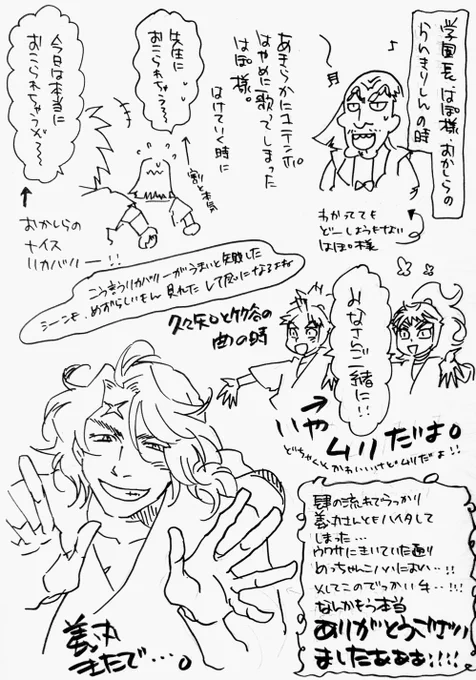 学園長はぽ様、おかしらの
らんきりしんの時
♪
わかってても
どーしようもない
はぽ様
あきらかに1テンポ
はやめに歌ってしまった
はぽ様。
はけていく時に
先生に
おこられちゃう〜〜
割と本気
今日は本当に
おこられちゃうぞ〜〜
おかしらの
ナイス
リカバリー!!
こう言うリカバリーがうまいと失敗した
シーンも、めずらしいもん見れたして気になるよね
久々知と竹谷の
曲の時
みなさんご一緒に!!
いや
ムリだよ。
どちゃくそかわいいけどムリだよ!!
肆の流れでうっかり
義丸さんともハイタして
しまった…
ウワサにきいていた通り
めっちゃこいいにおい…!!
そしてこのでっかい手…!!!
なんかもう本当
ありがとうござい
ましたぁぁぁ!!!!
義丸
きたで…。